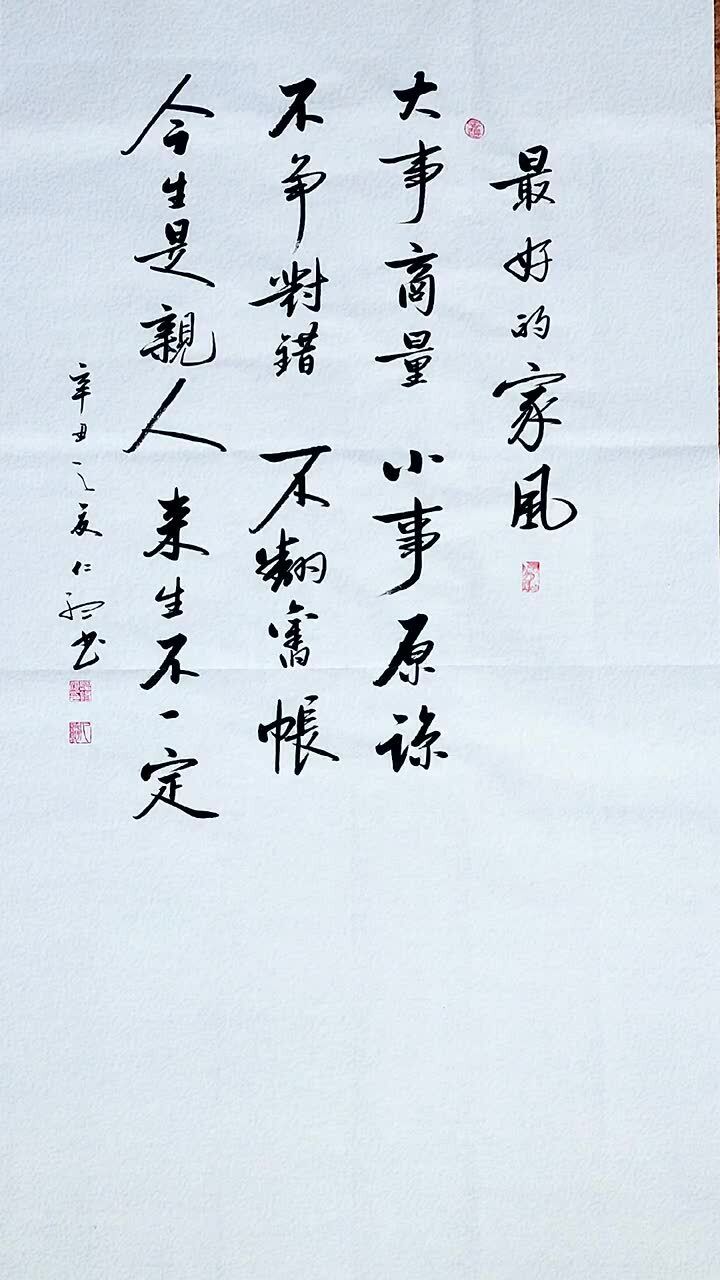 最好的家風
大事商量 小事原諒
不争對錯 不翻舊帳
今生是親人 来生不一定
辛丑之夏仁书